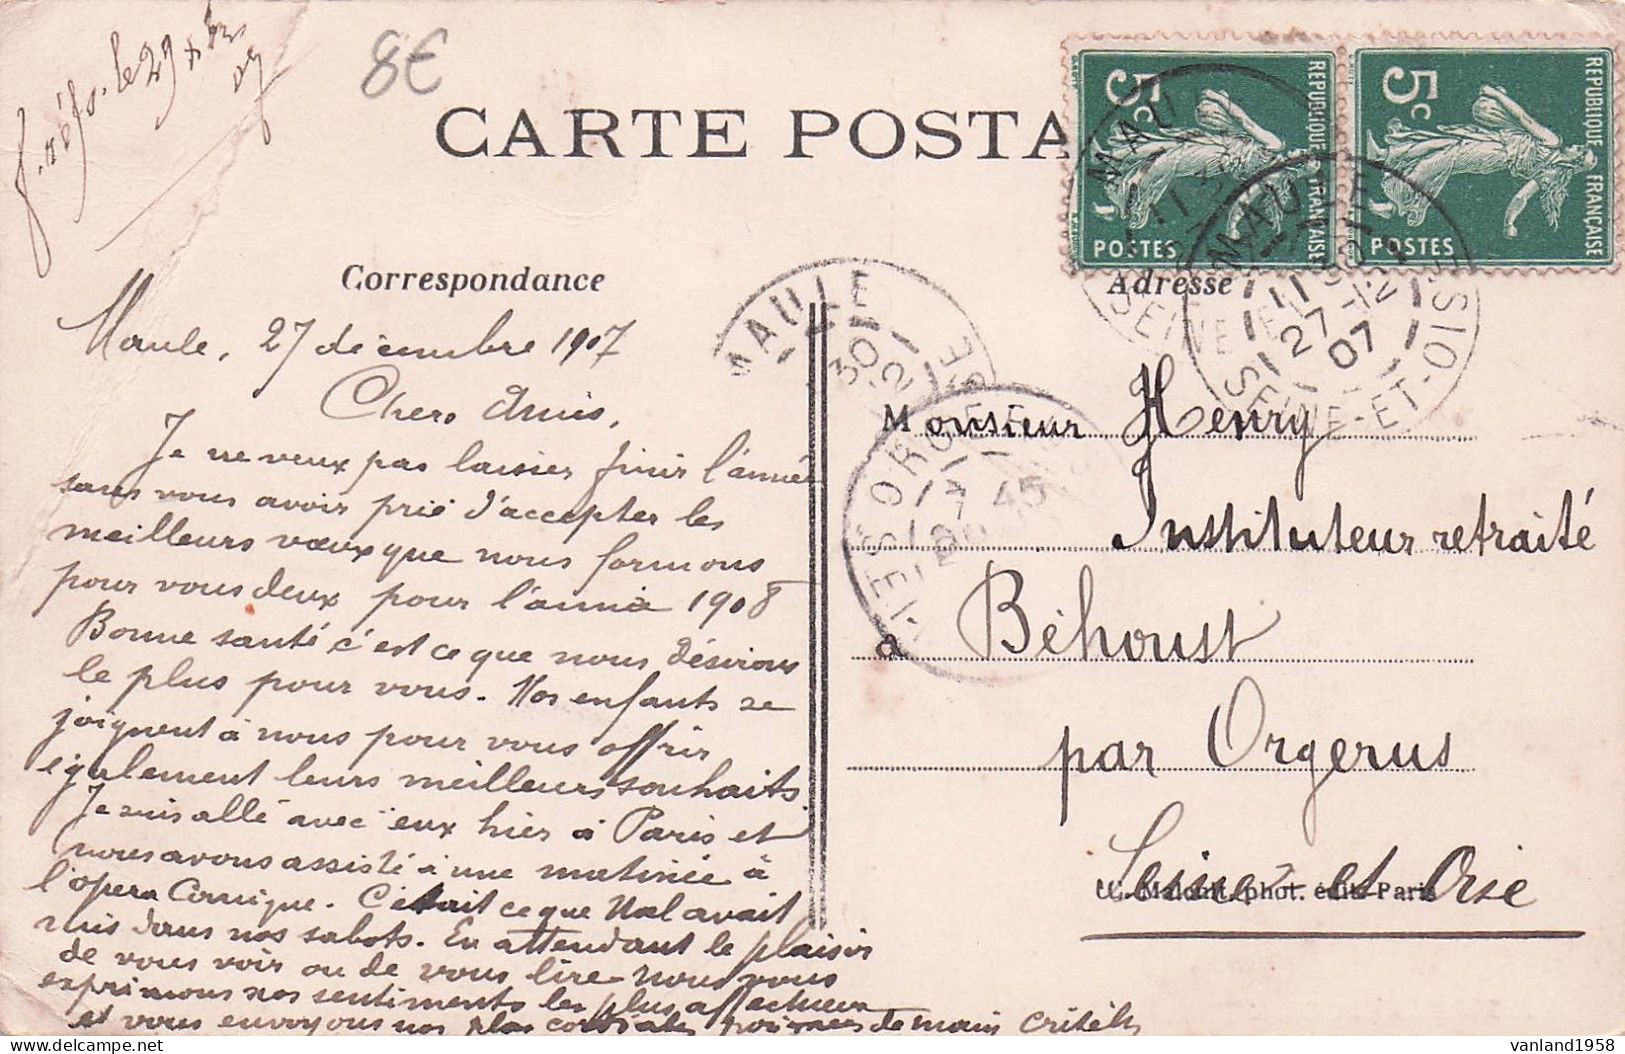 le 29 Xbre 07
8€
CARTE POSTA
5c REPUBLIQUE FRANÇAISE POSTES
5c REPUBLIQUE FRANÇAISE POSTES
MAULE 11 30 27-12 07 SEINE-ET-OISE
MAULE 30
ORGERUS 7 45
Correspondance
Adresse
Maule, 27 décembre 1907
Chers Amis,
Je ne veux pas laisser finir l'année
sans vous avoir prié d'accepter les
meilleurs vœux que nous formons
pour vous deux pour l'année 1908
Bonne santé c'est ce que nous désirons
le plus pour vous. Nos enfants se
joignent à nous pour vous offrir
également leurs meilleurs souhaits
Je suis allé avec eux hier à Paris et
nous avons assisté à une matinée à
l'opera Comique. C'était ce que Noël avait
mis dans nos sabots. En attendant le plaisir
de vous voir ou de vous lire nous vous
exprimons nos sentiments les plus affectueux
et vous envoyons nos plus cordiales poignées de main
Monsieur Henry
Instituteur retraité
à Béhoust
par Orgerus
Seine et Oise
phot. édit. Paris
vanland1958